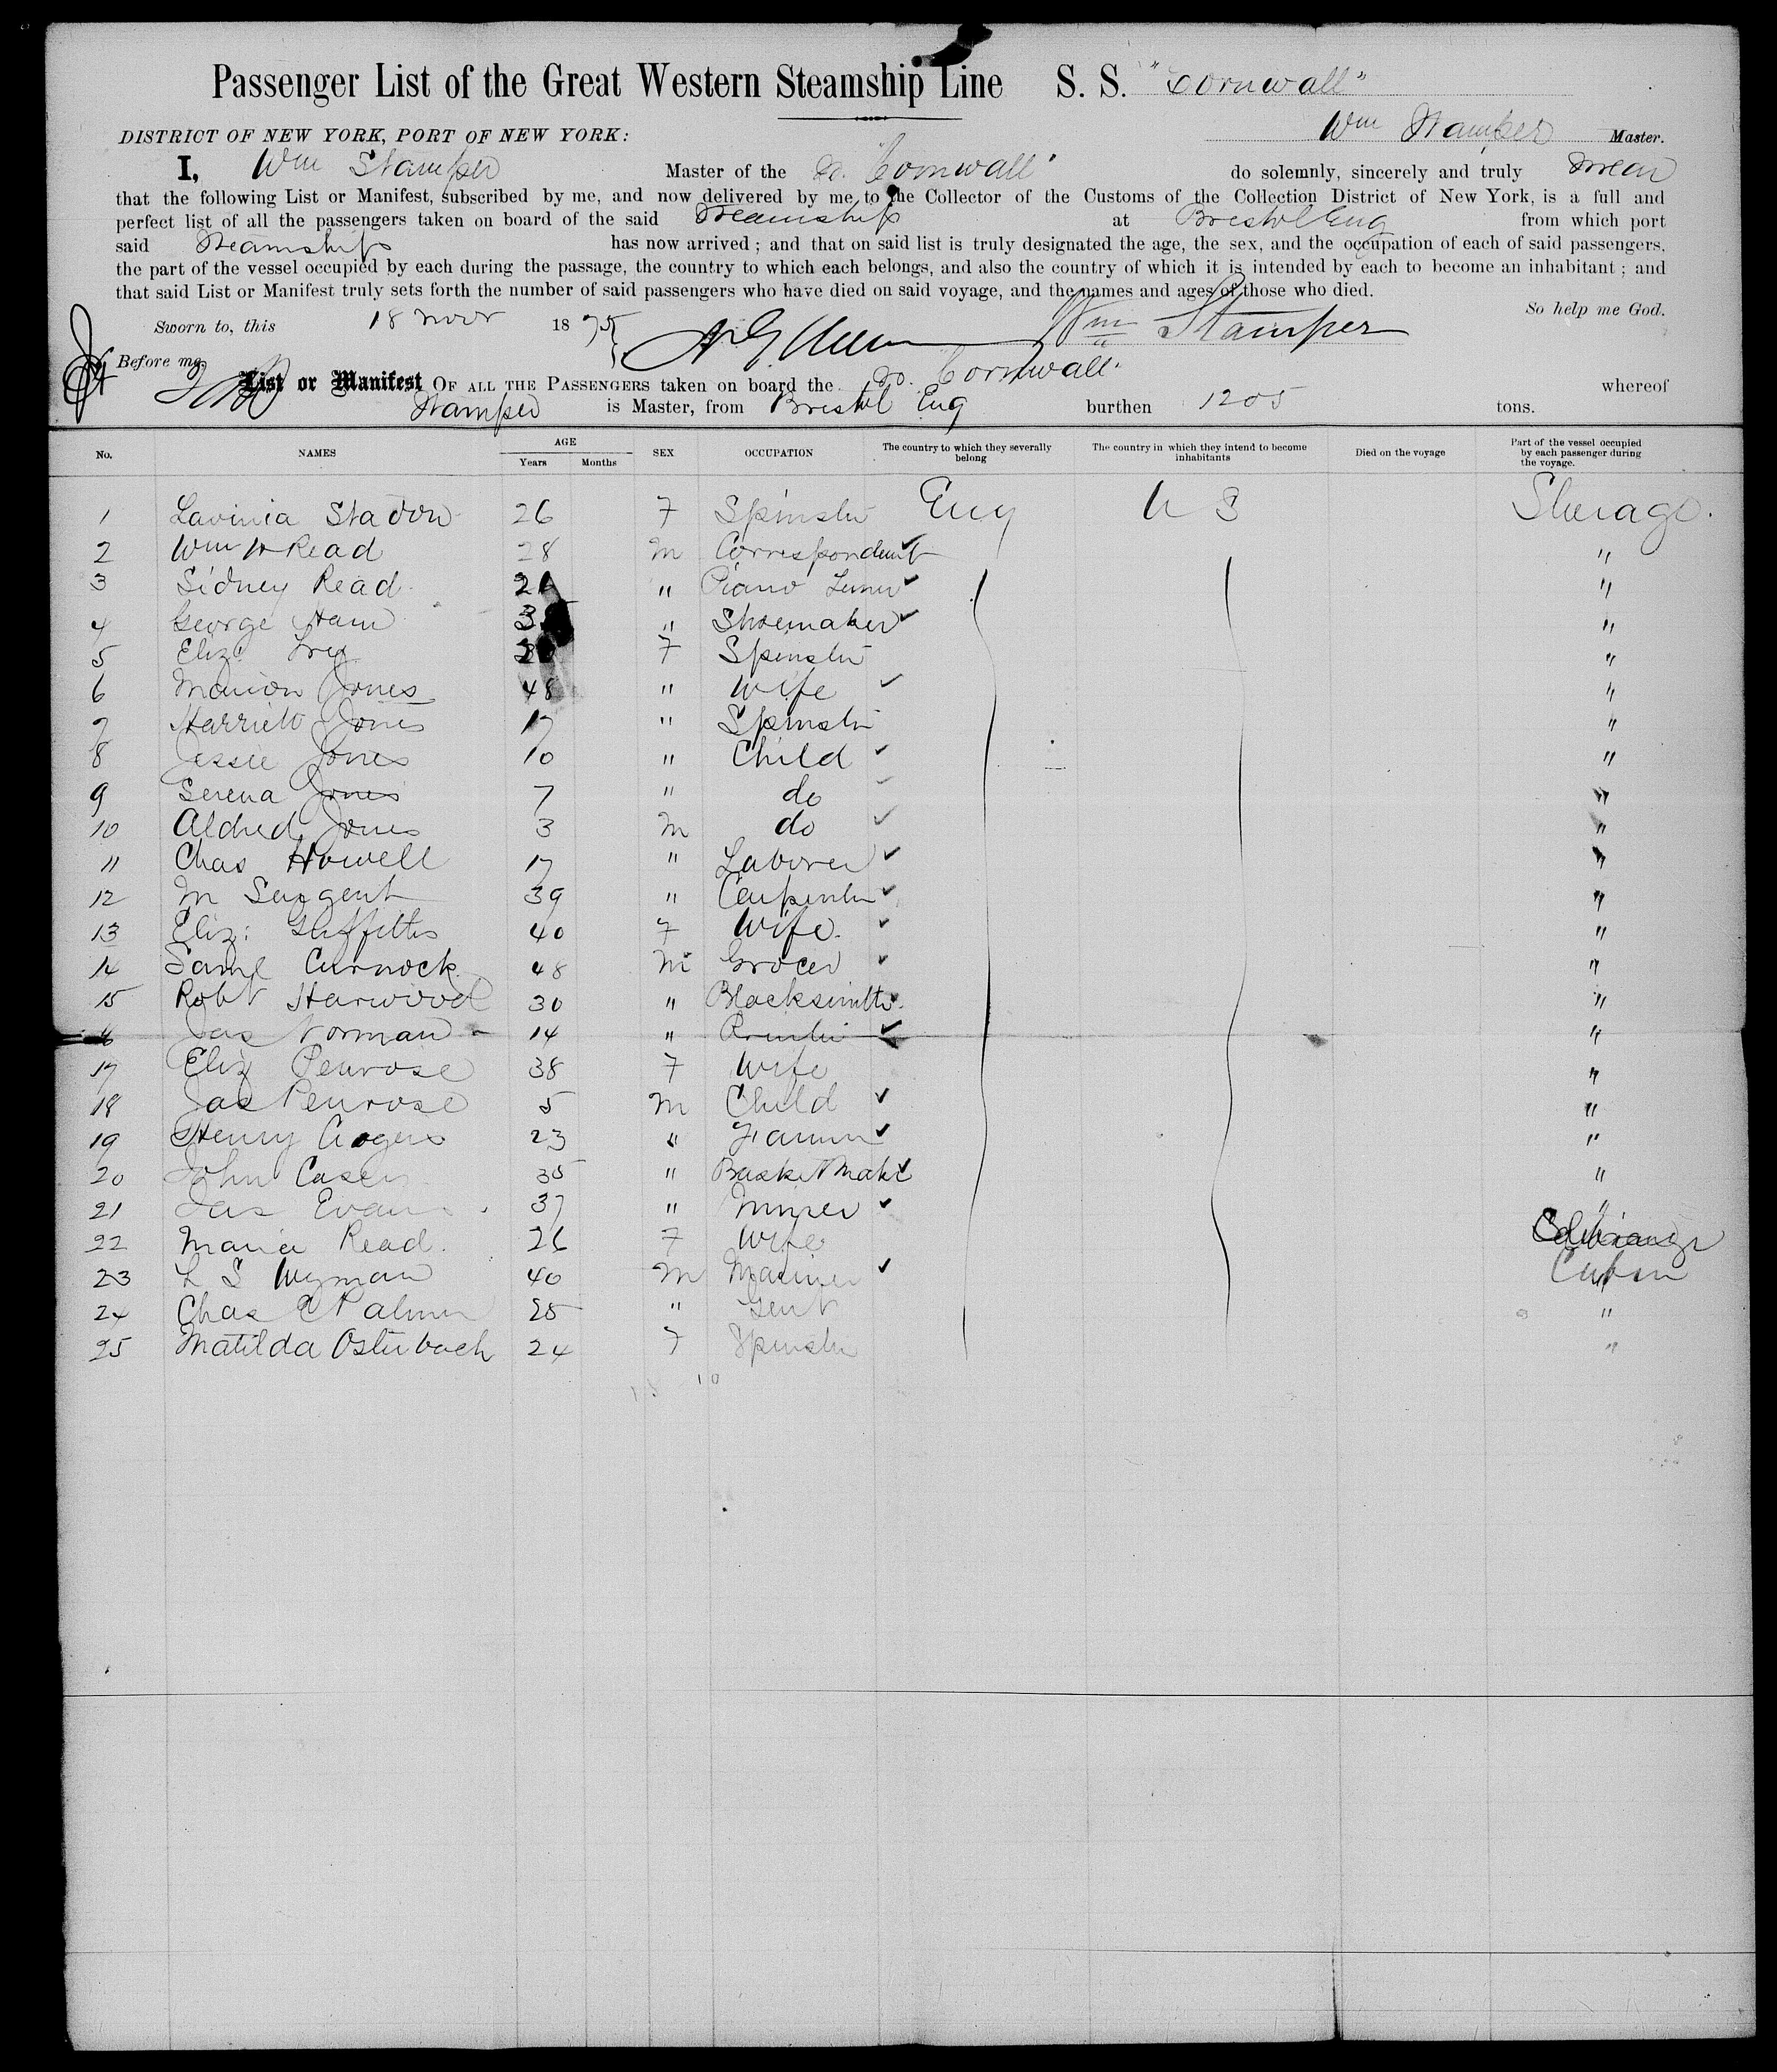 Passenger List of the Great Western Steamship Line S. S. "Cornwall"
DISTRICT OF NEW YORK, PORT OF NEW YORK: Wm Stamper Master.
I, Wm Stamper Master of the SS. Cornwall do solemnly, sincerely and truly swear
that the following List or Manifest, subscribed by me, and now delivered by me to the Collector of the Customs of the Collection District of New York, is a full and
perfect list of all the passengers taken on board of the said Steamship at Bristol Eng from which port
said Steamship has now arrived; and that on said list is truly designated the age, the sex, and the occupation of each of said passengers,
the part of the vessel occupied by each during the passage, the country to which each belongs, and also the country of which it is intended by each to become an inhabitant; and
that said List or Manifest truly sets forth the number of said passengers who have died on said voyage, and the names and ages of those who died.
So help me God.
Sworn to, this 18 Novr 1875 Wm Stamper
Before me,
List or Manifest OF ALL THE PASSENGERS taken on board the SS. Cornwall whereof
Stamper is Master, from Bristol Eng burthen 1205 tons.
No. NAMES AGE Years Months SEX OCCUPATION The country to which they severally belong The country in which they intend to become inhabitants Died on the voyage Part of the vessel occupied by each passenger during the voyage.
1 Lavinia Stadon 26 F Spinster Eng U S Steerage.
2 Wm H Read 28 M Correspondent "
3 Sidney Read " Piano Tuner "
4 George Ham " Shoemaker "
5 Eliz: F Spinster "
6 Marion Jones 48 " Wife "
7 Harriett Jones 17 " Spinster "
8 Jessie Jones 10 " Child "
9 Serena Jones 7 " do "
10 Aldred Jones 3 M do "
11 Chas Howell 17 " Laborer "
12 M Sargent 39 " Carpenter "
13 Eliz: Griffiths 40 F Wife. "
14 Saml Curnock 48 M Grocer "
15 Robt Harwood 30 " Blacksmith "
16 Jas Norman 14 " "
17 Eliz Penrose 38 F Wife "
18 Jas Penrose 5 M Child "
19 Henry Rogers 23 " "
20 John Casey 35 " Basket Maker "
21 Jas Evans 37 " Miner "
22 Maria Read. 26 F Wife
23 L S Wyman 40 M Mariner Cabin
24 Chas E Palmer 25 " Gent "
25 Matilda Osterboch 24 F Spinster "